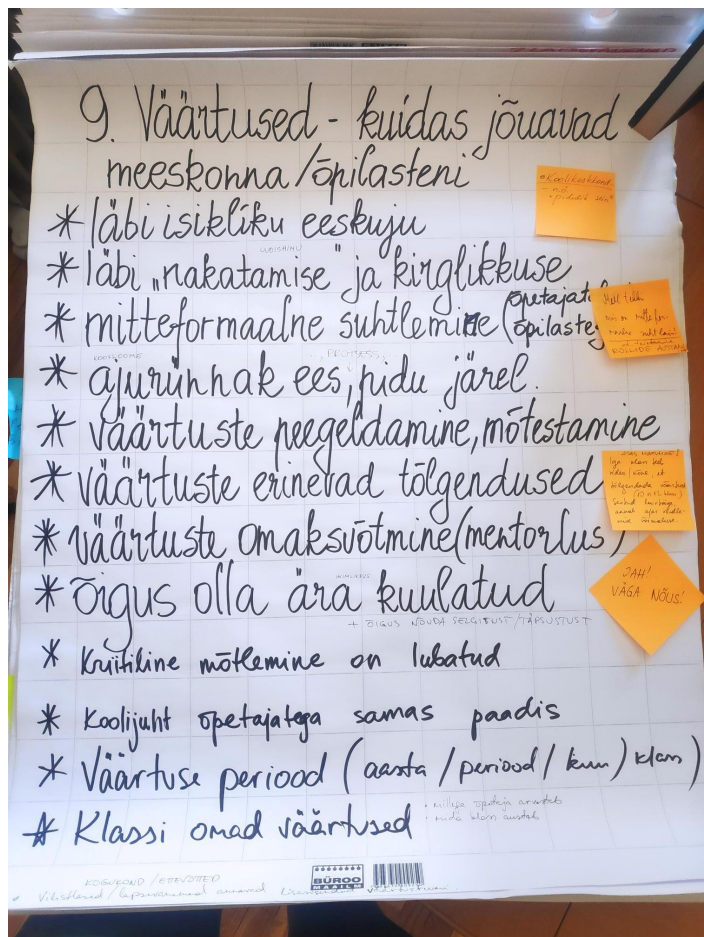 9. Väärtused - kuidas jõuavad
meeskonna/õpilasteni
* läbi isikliku eeskuju
* läbi „nakatamise" ja kirglikkuse
* mitteformaalne suhtlemine (õpetajate
õpilastega
KOOSLOOME
PROTSESS
* ajurünnak ees, pidu järel.
* väärtuste peegeldamine, mõtestamine
* väärtuste erinevad tõlgendused
* väärtuste omaksvõtmine (mentorlus)
* õigus olla ära kuulatud
+ ÕIGUS NÕUDA SELGITUST/TÄPSUSTUST
* Kriitiline mõtlemine on lubatud
* Koolijuht õpetajatega samas paadis
* Väärtuse periood (aasta / periood / kuu) klass)
* Klassi omad väärtused
KOGUKOND / EEVOTED
BÜROO
MAAILM
JAH!
VÄGA NÕUS!